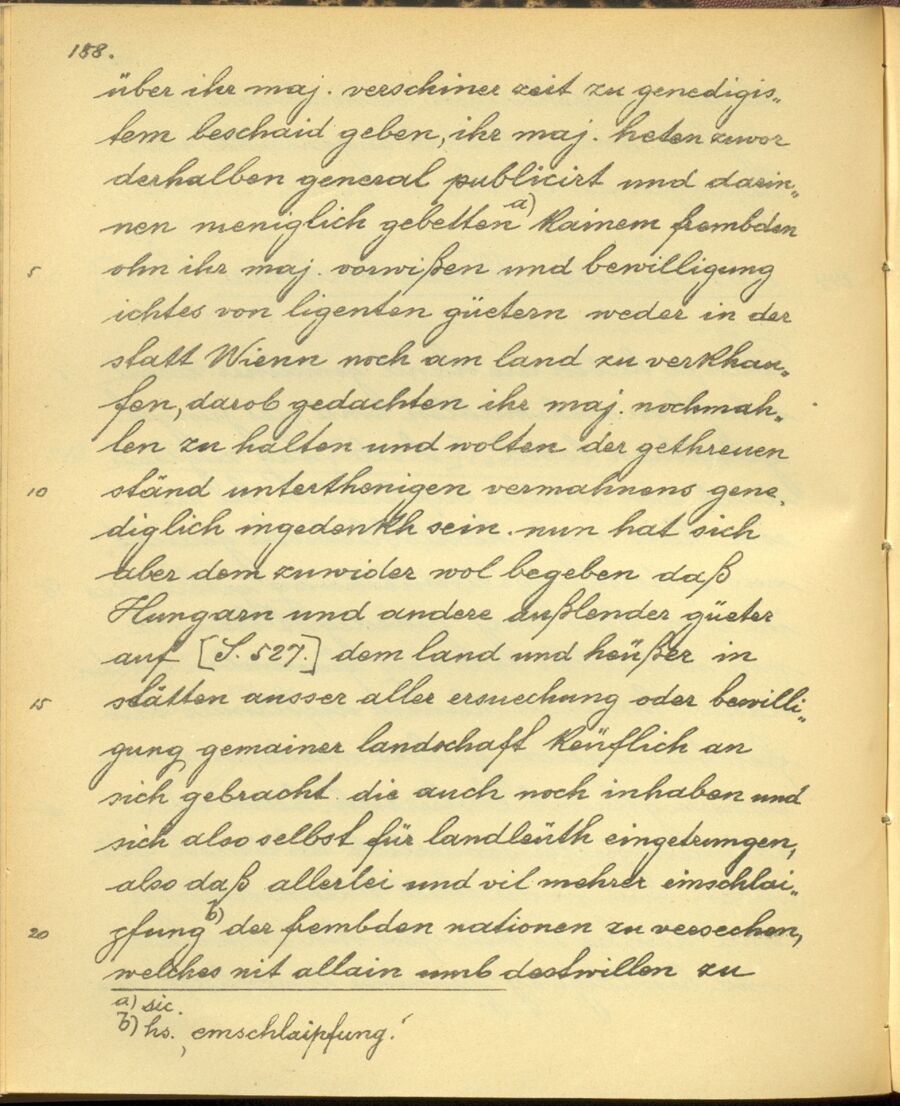 188.
über ihr maj. verschiner zeit zu genedigis„
tem beschaid geben, ihr maj. heten zuvor
derhalben general publicirt und darin„
nen meniglich gebetten a) kainem frembden
5 ohn ihr maj. vorwißen und bewilligung
ichtes von ligenten güetern weder in der
statt Wienn noch am land zu verkhau„
fen, darob gedachten ihr maj. nochmah„
len zu halten und wolten der gethreuen
10 ständ unterthenigen vermahnens gene„
diglich ingedenkh sein. nun hat sich
aber dem zuwider wol begeben daß
Hungarn und andere außlender güeter
auf [S. 527.] dem land und heüßer in
15 stätten ausser aller ersuechung oder bewilli„
gung gemainer landschaft keüflich an
sich gebracht. die auch noch inhaben und
sich also selbst für landleüth eingetrungen,
also daß allerlei und vil mehrer einschlai„
20 pfung b) der frembden nationen zu versechen,
welches nit allain umb destwillen zu
a) sic.
b) hs. ‚emschlaipfung.‘